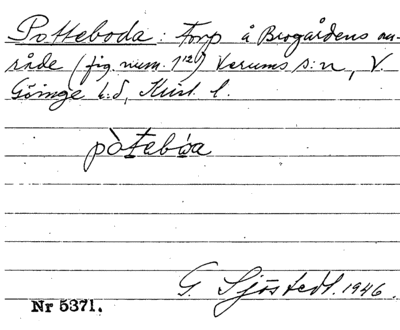 Potteboda: Torp å Brogårdens om-
råde (jfg. num. 1¹²) Verums s:n, V.
Göinge h:d, Krist. l.
pòtebo̤a
G. Sjöstedt. 1946.
Nr 5371.